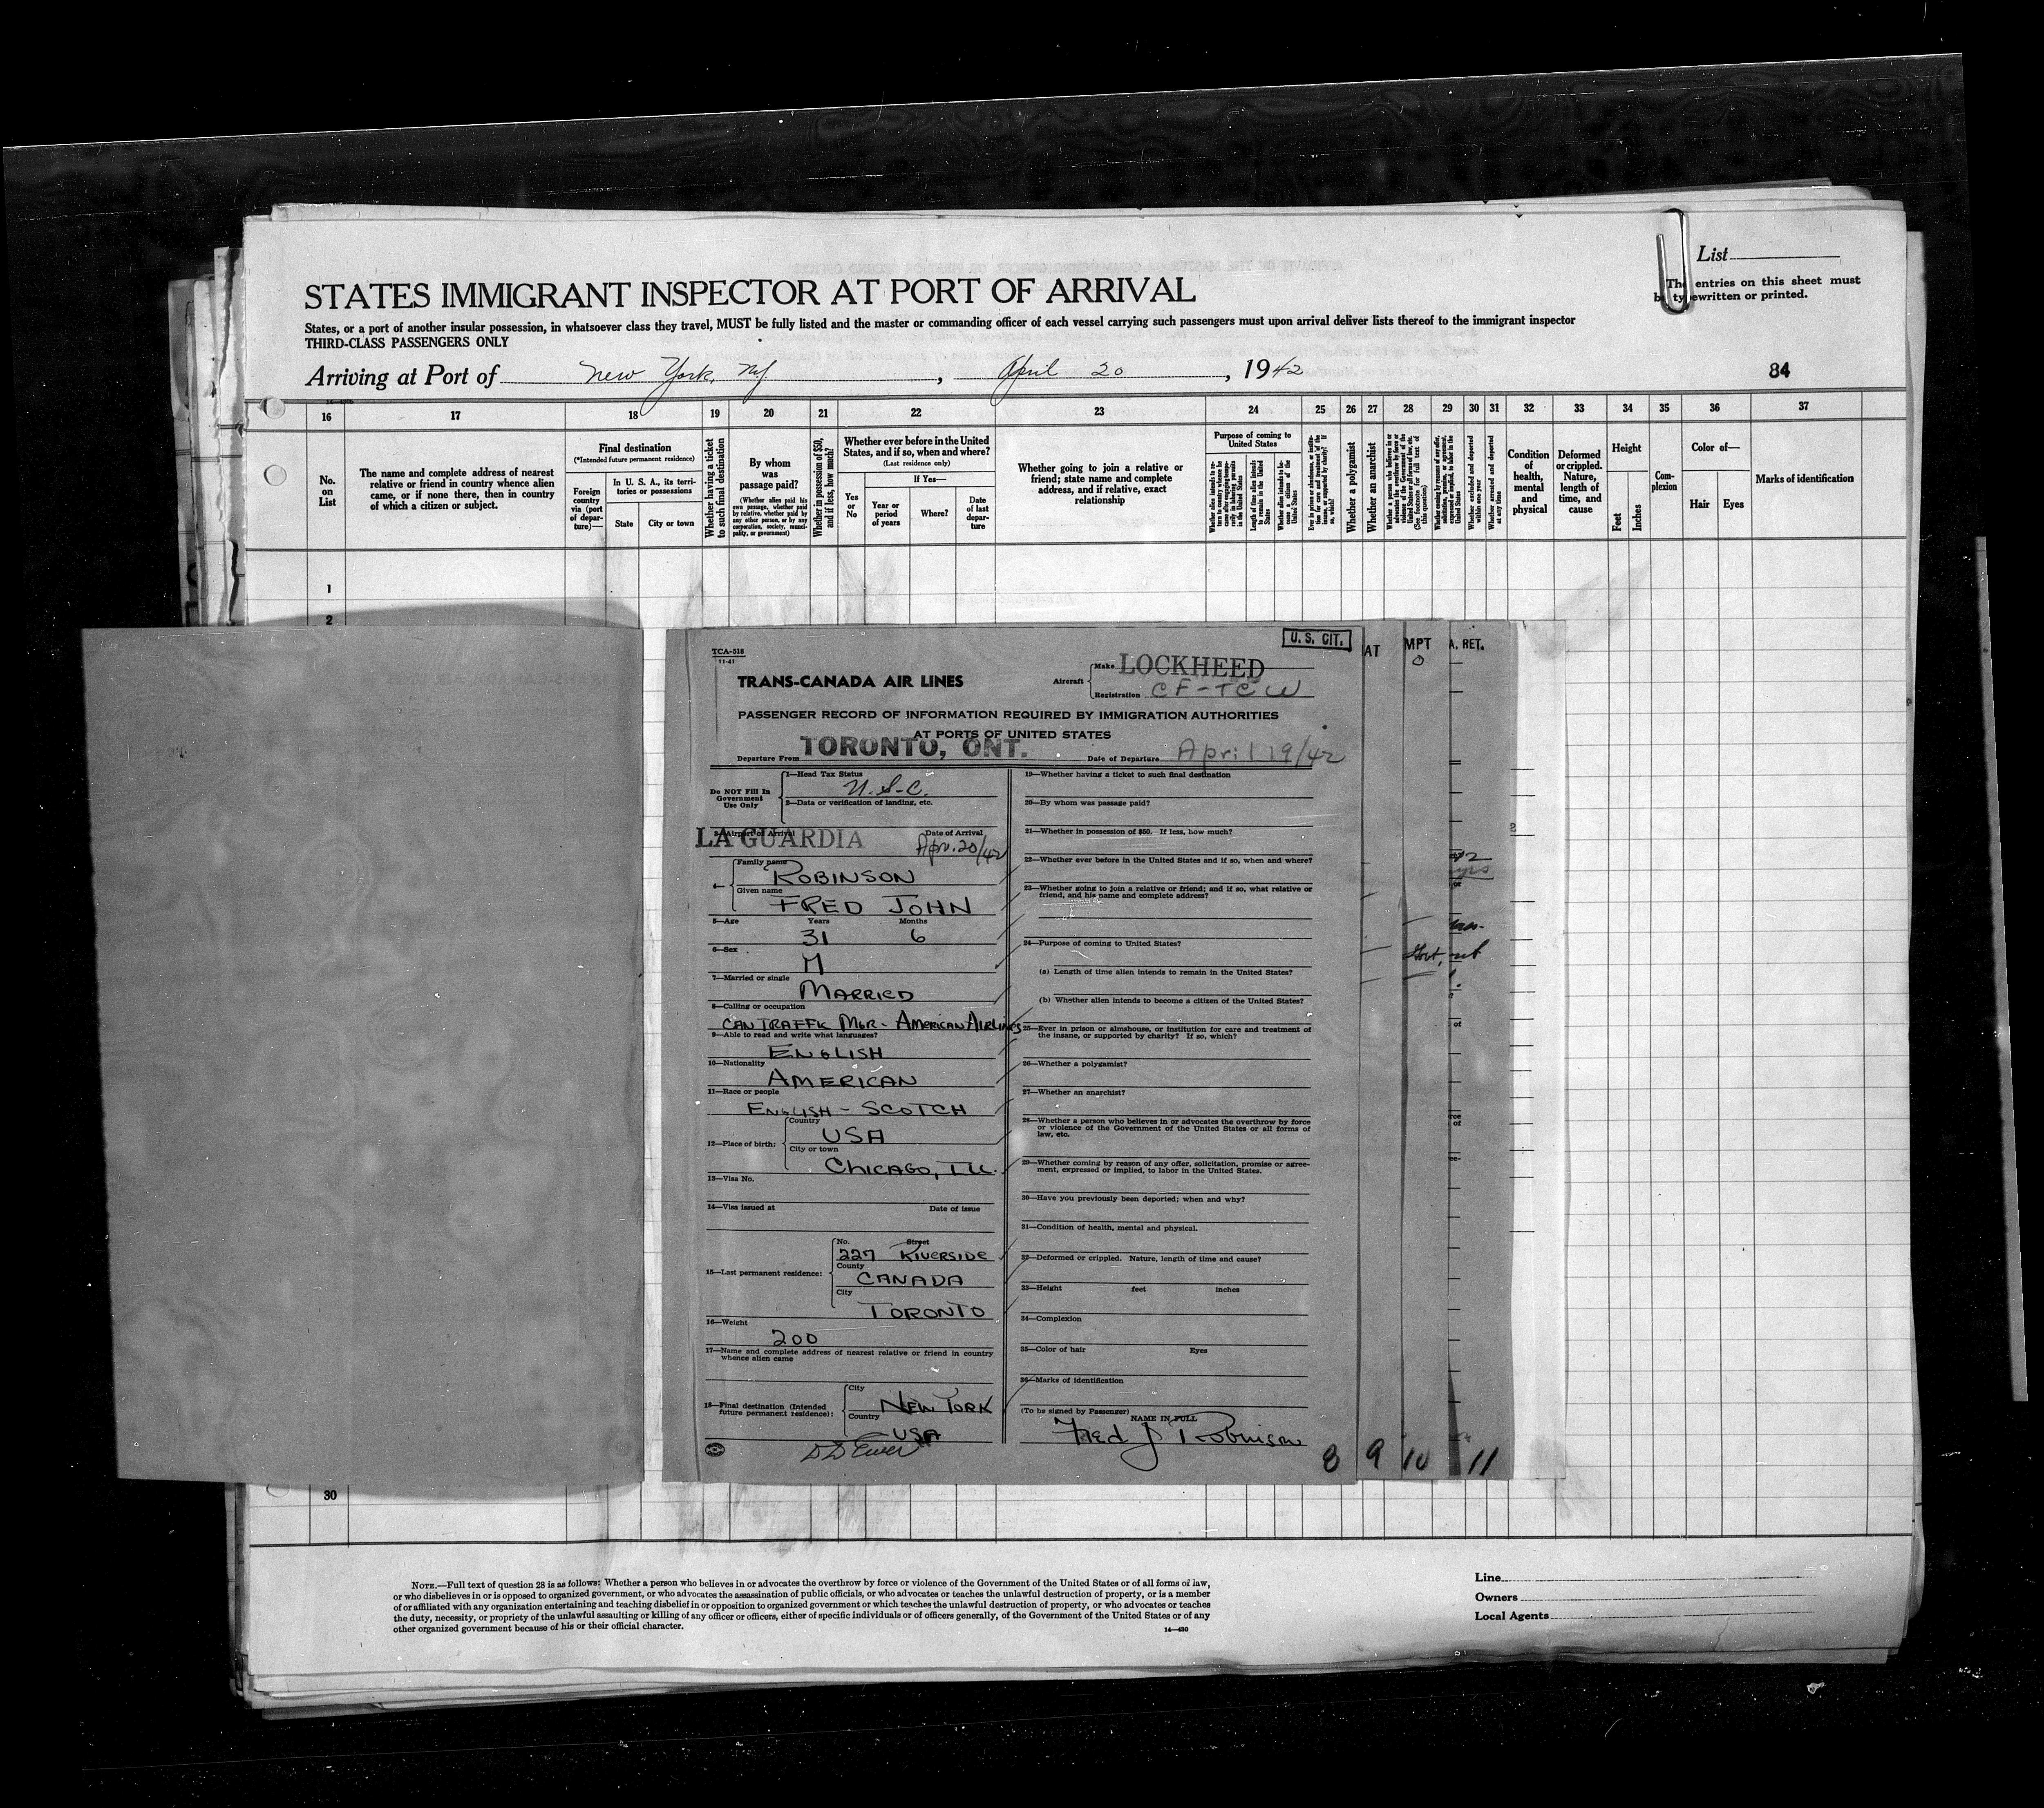 List
The entries on this sheet must
be typewritten or printed.
STATES IMMIGRANT INSPECTOR AT PORT OF ARRIVAL
States, or a port of another insular possession, in whatsoever class they travel, MUST be fully listed and the master or commanding officer of each vessel carrying such passengers must upon arrival deliver lists thereof to the immigrant inspector
THIRD-CLASS PASSENGERS ONLY
Arriving at Port of New York, NY, April 20, 1942
84
16 17 18 19 20 21 22 23 24 25 26 27 28 29 30 31 32 33 34 35 36 37
No. on List
The name and complete address of nearest
relative or friend in country whence alien
came, or if none there, then in country
of which a citizen or subject.
Final destination
(*Intended future permanent residence)
Foreign country via (port of departure)—
In U. S. A., its territories or possessions
State
City or town
Whether having a ticket to such final destination
By whom was passage paid?
(Whether alien paid his own passage, whether paid by relative, whether paid by any other person, or by any corporation, society, municipality, or government)
Whether in possession of $50, and if less, how much?
Whether ever before in the United
States, and if so, when and where?
(Last residence only)
If Yes—
Yes or No
Year or period of years
Where?
Date of last departure
Whether going to join a relative or
friend; state name and complete
address, and if relative, exact
relationship
Purpose of coming to
United States
Length of time alien intends to remain in the United States
Whether alien intends to become a citizen of the United States
Whether a polygamist
Whether an anarchist
Whether arrested and deported at any time
Condition of health, mental and physical
Deformed or crippled. Nature, length of time, and cause
Height
Feet
Inches
Complexion
Color of—
Hair
Eyes
Marks of identification
1
2
30
U. S. CIT.
AT
MPT
0
A, RET.
TCA-518
11-41
TRANS-CANADA AIR LINES
Aircraft
Make LOCKHEED
Registration CF-TCW
PASSENGER RECORD OF INFORMATION REQUIRED BY IMMIGRATION AUTHORITIES
AT PORTS OF UNITED STATES
Departure From TORONTO, ONT.
Date of Departure April 19/42
Do NOT Fill In
Government
Use Only
1—Head Tax Status
U.S.C.
2—Data or verification of landing, etc.
3—Airport of Arrival
LA GUARDIA
Date of Arrival
Apr. 20/42
4—
Family name
ROBINSON
Given name
FRED JOHN
5—Age Years Months
31 6
6—Sex
M
7—Married or single
MARRIED
8—Calling or occupation
CAN TRAFFIC MGR - AMERICAN AIRLINES
9—Able to read and write what languages?
ENGLISH
10—Nationality
AMERICAN
11—Race or people
ENGLISH - SCOTCH
12—Place of birth:
Country
USA
City or town
CHICAGO, ILL.
13—Visa No.
14—Visa issued at Date of issue
15—Last permanent residence:
No. Street
227 RIVERSIDE
County
CANADA
City
TORONTO
16—Weight
200
17—Name and complete address of nearest relative or friend in country
whence alien came
18—Final destination (Intended
future permanent residence):
City
NEW YORK
Country
USA
19—Whether having a ticket to such final destination
20—By whom was passage paid?
21—Whether in possession of $50. If less, how much?
22—Whether ever before in the United States and if so, when and where?
23—Whether going to join a relative or friend; and if so, what relative or
friend, and his name and complete address?
24—Purpose of coming to United States?
(a) Length of time alien intends to remain in the United States?
(b) Whether alien intends to become a citizen of the United States?
25—Ever in prison or almshouse, or institution for care and treatment of
the insane, or supported by charity? If so, which?
26—Whether a polygamist?
27—Whether an anarchist?
28—Whether a person who believes in or advocates the overthrow by force
or violence of the Government of the United States or all forms of
law, etc.
29—Whether coming by reason of any offer, solicitation, promise or agree-
ment, expressed or implied, to labor in the United States.
30—Have you previously been deported; when and why?
31—Condition of health, mental and physical.
32—Deformed or crippled. Nature, length of time and cause?
33—Height feet inches
34—Complexion
35—Color of hair Eyes
36—Marks of identification
(To be signed by Passenger)
NAME IN FULL
Fred J Robinson
8 9 10 11
NOTE.—Full text of question 28 is as follows: Whether a person who believes in or advocates the overthrow by force or violence of the Government of the United States or of all forms of law,
or who disbelieves in or is opposed to organized government, or who advocates the assassination of public officials, or who advocates or teaches the unlawful destruction of property, or is a member
of or affiliated with any organization entertaining and teaching disbelief in or opposition to organized government or which teaches the unlawful destruction of property, or who advocates or teaches
the duty, necessity, or propriety of the unlawful assaulting or killing of any officer or officers, either of specific individuals or of officers generally, of the Government of the United States or of any
other organized government because of his or their official character.
14—430
Line
Owners
Local Agents